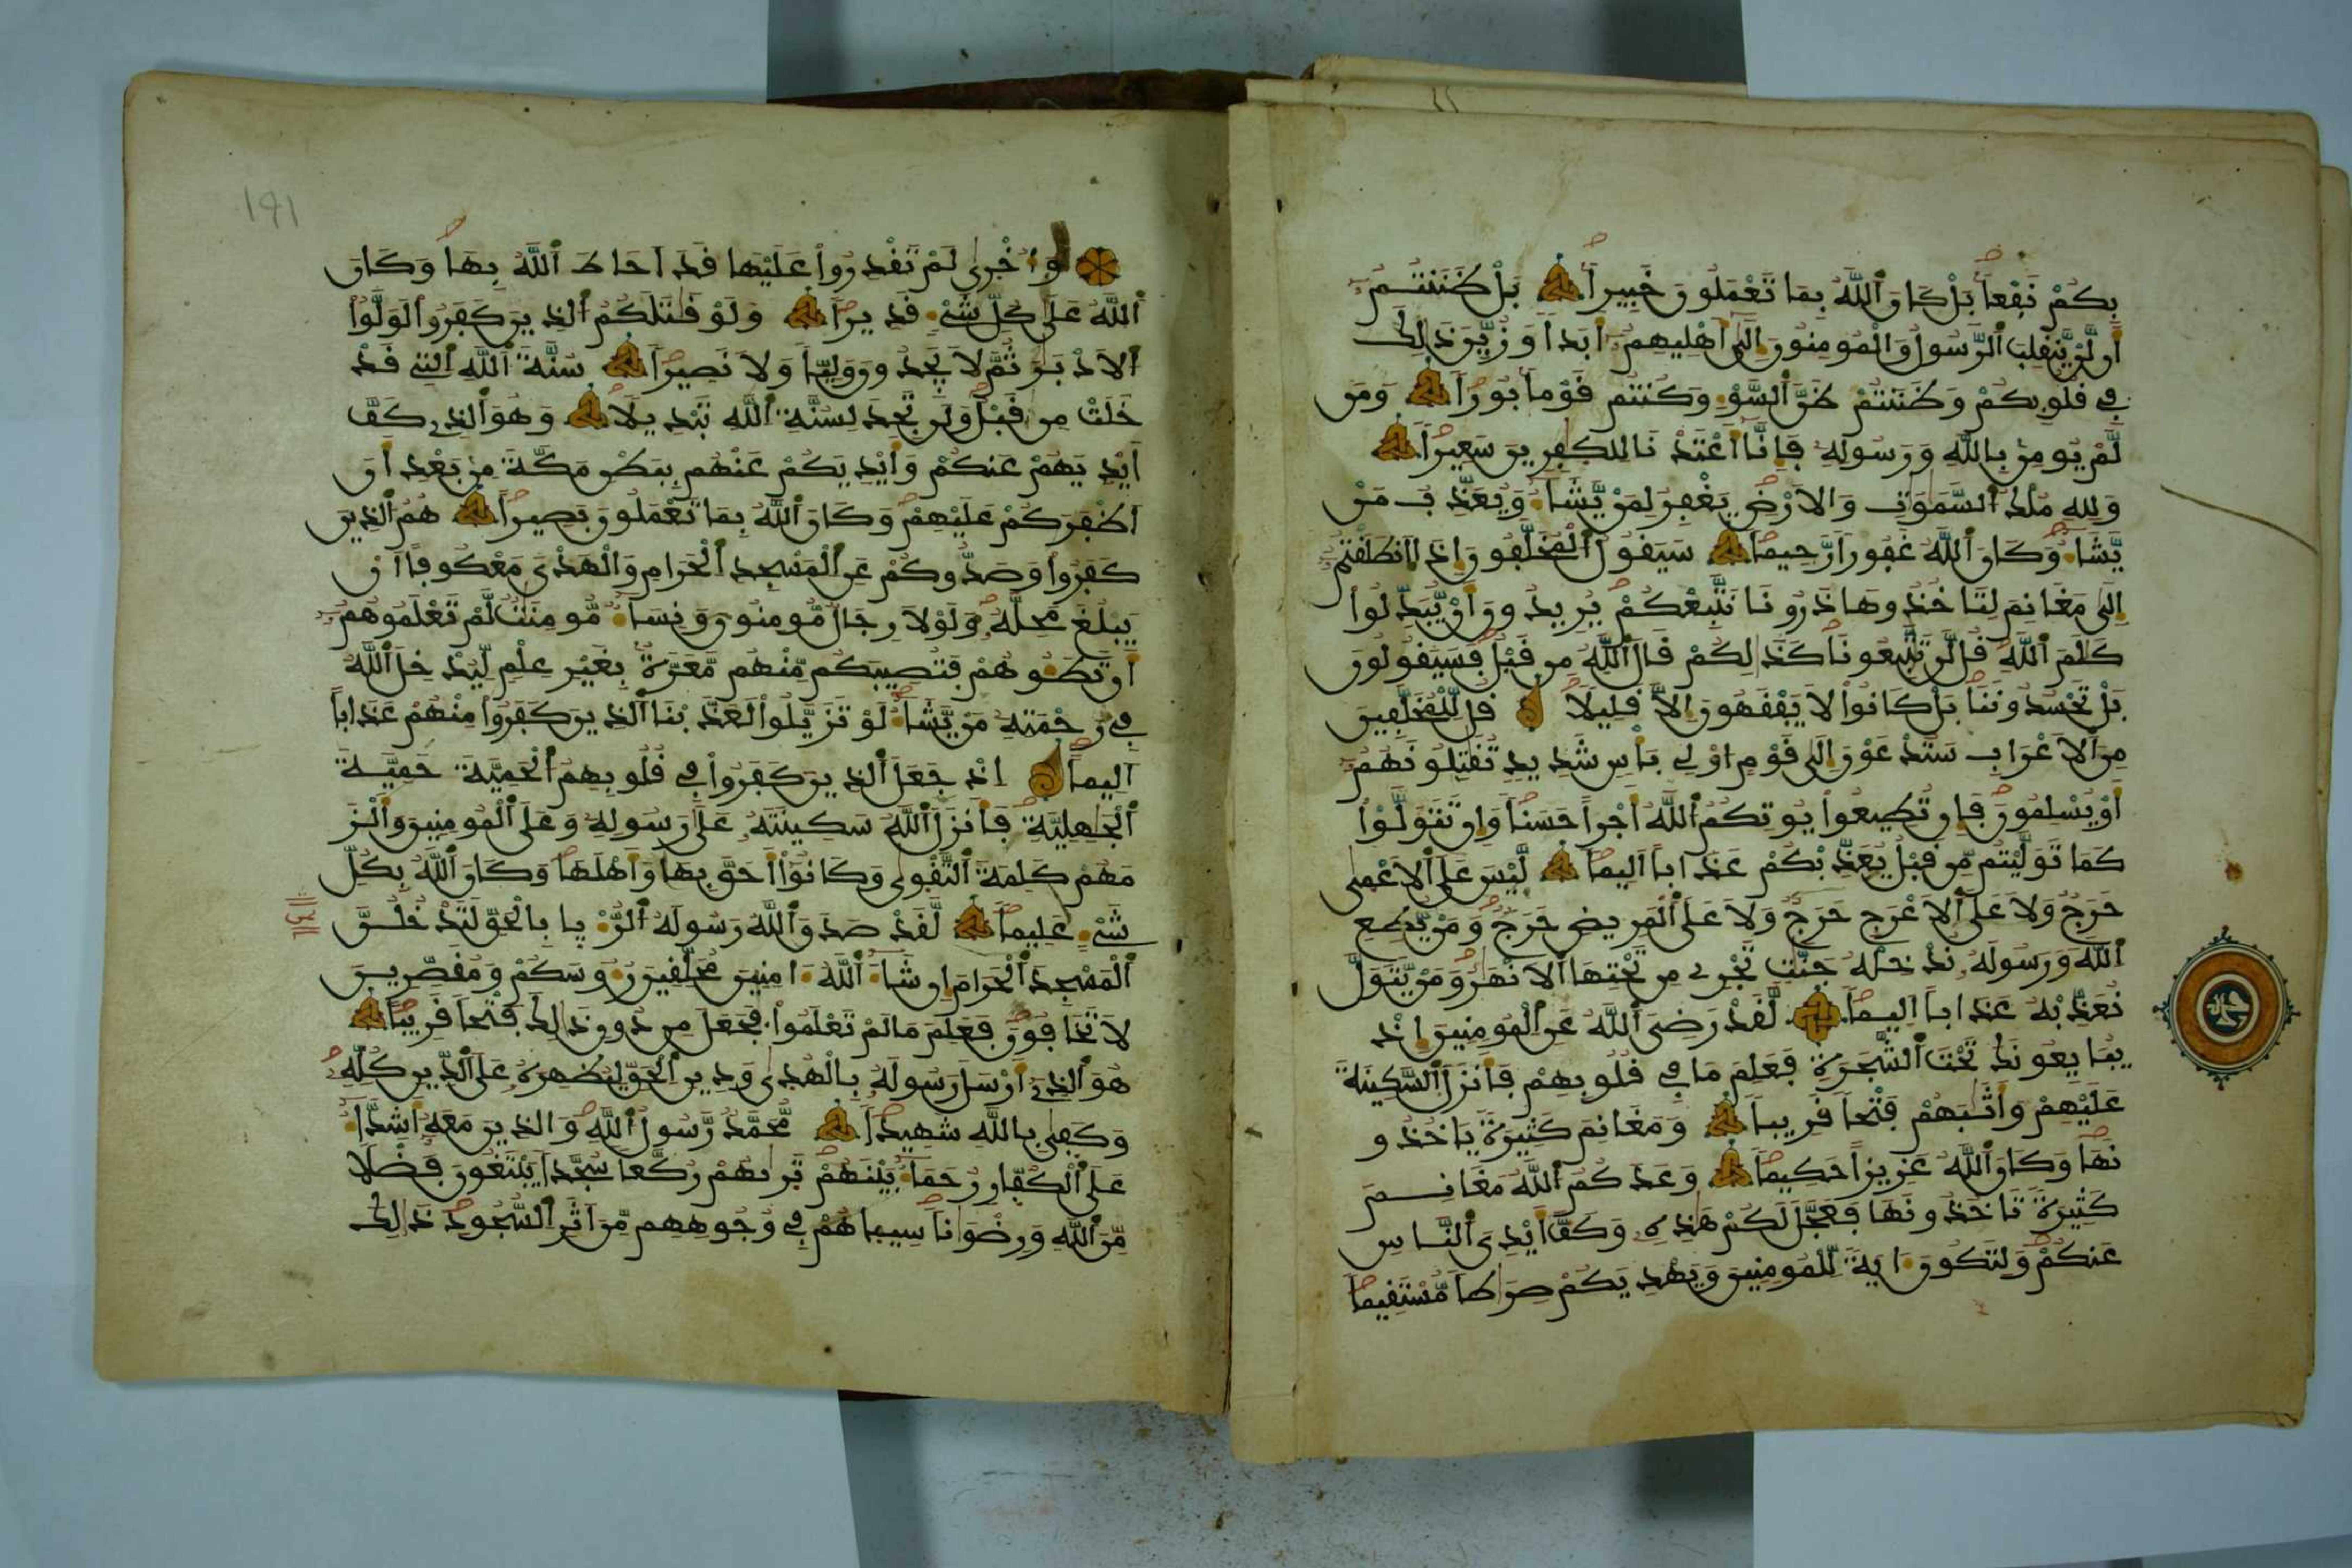 بكم نفعا بل كان الله بما تعملون خبيرا بل ظننتم
أن لن ينقلب الرسول والمومنون إلى أهليهم أبدا وزين ذلك
في قلوبكم وظننتم ظن السوء وكنتم قوما بورا ومن
لم يومن بالله ورسوله فإنا أعتدنا للكفرين سعيرا
ولله ملك السموت والارض يغفر لمن يشاء ويعذب من
يشاء وكان الله غفورا رحيما سيقول المخلفون إذا انطلقتم
إلى مغانم لتاخذوها ذرونا نتبعكم يريدون أن يبدلوا
كلم الله قل لن تتبعونا كذلكم قال الله من قبل فسيقولون
بل تحسدوننا بل كانوا لا يفقهون إلا قليلا قل للمخلفين
من الاعراب ستدعون إلى قوم اولي باس شديد تقتلونهم
أو يسلمون فإن تطيعوا يوتكم الله أجرا حسنا وإن تتولوا
كما توليتم من قبل يعذبكم عذابا اليما ليس على الاعمى
حرج ولا على الاعرج حرج ولا على المريض حرج ومن يطع
الله ورسوله ندخله جنت تجري من تحتها الانهر ومن يتول
نعذبه عذابا اليما لقد رضي الله عن المومنين إذ
يبايعونك تحت الشجرة فعلم ما في قلوبهم فأنزل السكينة
عليهم وأثبهم فتحا قريبا ومغانم كثيرة ياخذو
نها وكان الله عزيزا حكيما وعدكم الله مغانم
كثيرة تاخذونها فعجل لكم هذه وكف أيدي الناس
عنكم ولتكون ءاية للمومنين ويهديكم صراطا مستقيما
191
وأخرى لم تقدروا عليها قد احاط الله بها وكان
الله على كل شيء قديرا ولو قتلكم الذين كفروا لولوا
الادبر ثم لا يجدون وليا ولا نصيرا سنة الله التي قد
خلت من قبل ولن تجد لسنة الله تبديلا وهو الذي كف
أيديهم عنكم وأيديكم عنهم ببطن مكة من بعد أن
اظفركم عليهم وكان الله بما تعملون بصيرا هم الذين
كفروا وصدوكم عن المسجد الحرام والهدي معكوفا ان
يبلغ محله ولولا رجال مومنون ونساء مومنت لم تعلموهم
أن تطئوهم فتصيبكم منهم معرة بغير علم ليدخل الله
في رحمته من يشاء لو تزيلوا لعذبنا الذين كفروا منهم عذابا
اليما اذ جعل الذين كفروا في قلوبهم الحمية حمية
الجهلية فأنزل الله سكينته على رسوله وعلى المومنين وألز
مهم كلمة التقوى وكانوا أحق بها وأهلها وكان الله بكل
شيء عليما لقد صدق الله رسوله الرءيا بالحق لتدخلن
المسجد الحرام إن شاء الله ءامنين محلقين رءوسكم ومقصرين
لا تخافون فعلم ما لم تعلموا فجعل من دون ذلك فتحا قريبا
هو الذي أرسل رسوله بالهدى ودين الحق ليظهره على الدين كله
وكفى بالله شهيدا محمد رسول الله والذين معه أشداء
على الكفار رحماء بينهم تريهم ركعا سجدا يبتغون فضلا
من الله ورضوانا سيماهم في وجوههم من اثر السجود ذلك